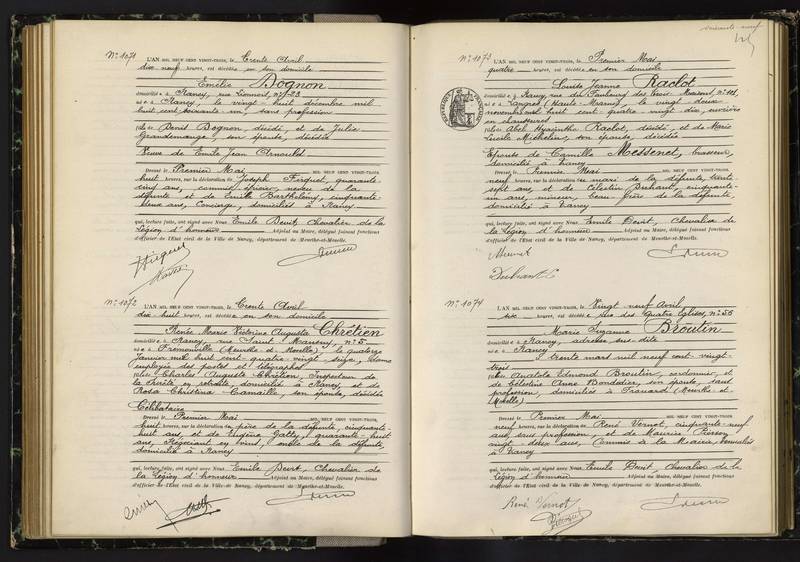 N° 1071
L'AN MIL NEUF CENT VINGT-TROIS, le Trente Avril
dix neuf heures, est décédée en son domicile
Emélie Bognon
domiciliée à Nancy, rue Lionnois, n° 23
née à Nancy, le vingt huit décembre mil
huit cent soixante un, sans profession
fille de Denis Bognon, décédé, et de Julie
Grandemange, son épouse, décédée
Veuve de Emile Jean Arnould
Dressé le Premier Mai MIL NEUF CENT VINGT-TROIS,
huit heures, sur la déclaration de Joseph Firquet, quarante
cinq ans, commis épicier, neveu de la
défunte et de Emile Barthélemy, cinquante
deux ans, Concierge, domiciliés à Nancy
qui, lecture faite, ont signé avec Nous Emile Devit, Chevalier de la
Légion d'honneur Adjoint au Maire, délégué faisant fonctions
d'officier de l'Etat civil de la Ville de Nancy, département de Meurthe-et-Moselle.
N° 1072
L'AN MIL NEUF CENT VINGT-TROIS, le Trente Avril
dix huit heures, est décédée en son domicile
Renée Marie Victorine Augusta Chrétien
domiciliée à Nancy, rue Saint Mansuy, n° 5
née à Fromonville (Meurthe et Moselle), le quatorze
Janvier mil huit cent quatre vingt seize, Dame
employée des postes et télégraphes
fille de Charles Auguste Chrétien, Inspecteur de
la Sûreté en retraite, domicilié à Nancy, et de
Rosa Christina Camaille, son épouse, décédée
Célibataire
Dressé le Premier Mai MIL NEUF CENT VINGT-TROIS,
huit heures, sur la déclaration du père de la défunte, cinquante
huit ans, et de Eugène Gatty, quarante huit
ans, Négociant en vins, oncle de la défunte,
domicilié à Nancy
qui, lecture faite, ont signé avec Nous Emile Devit, Chevalier de
la Légion d'honneur Adjoint au Maire, délégué faisant fonctions
d'officier de l'Etat civil de la Ville de Nancy, département de Meurthe-et-Moselle.
N° 1073
L'AN MIL NEUF CENT VINGT-TROIS, le Premier Mai
quatre heures, est décédée en son domicile
Louise Jeanne Raclot
domiciliée à Nancy, rue du Faubourg des Trois Maisons, n° 101,
née à Langres (Haute-Marne), le vingt deux
novembre mil huit cent quatre vingt dix, ouvrière
en chaussures
fille de Abel Hyacinthe Raclot, décédé, et de Marie
Lucile Michelin, son épouse, décédée
Epouse de Camille Messenet, brasseur,
domicilié à Nancy
Dressé le Premier Mai MIL NEUF CENT VINGT-TROIS,
neuf heures, sur la déclaration du mari de la défunte, trente
sept ans, et de Célestin Duhaut, cinquante
un ans, mineur, beau-frère de la défunte,
domicilié à Nancy
qui, lecture faite, ont signé avec Nous Emile Devit, Chevalier de
la Légion d'honneur Adjoint au Maire, délégué faisant fonctions
d'officier de l'Etat civil de la Ville de Nancy, département de Meurthe-et-Moselle.
N° 1074
L'AN MIL NEUF CENT VINGT-TROIS, le Vingt neuf Avril
six heures, est décédée rue des Quatre Eglises, n° 56
Marie Suzanne Broutin
domiciliée à Nancy, adresse sus-dite
née à Nancy
le trente mars mil neuf cent vingt-
trois
fille de Anatole Edmond Broutin, cordonnier, et
de Célestine Anne Bondidier, son épouse, sans
profession, domiciliés à Frouard (Meurthe-et-
Moselle)
Dressé le Premier Mai MIL NEUF CENT VINGT-TROIS,
neuf heures, sur la déclaration de René Vernot, cinquante-neuf
ans, sans profession, et de Maurice Pierson,
vingt-deux ans, Commis à la Mairie, domiciliés
à Nancy
qui, lecture faite, ont signé avec Nous Emile Devit, Chevalier de la
Légion d'honneur Adjoint au Maire, délégué faisant fonctions
d'officier de l'Etat civil de la Ville de Nancy, département de Meurthe-et-Moselle.
René Vernot